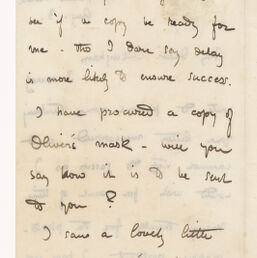 see if a copy be ready for
me - tho I dare say delay
is more likely to ensure success.
I have procured a copy of
Oliver's mask - will you
say how it is to be sent
to you?
I saw a lovely little